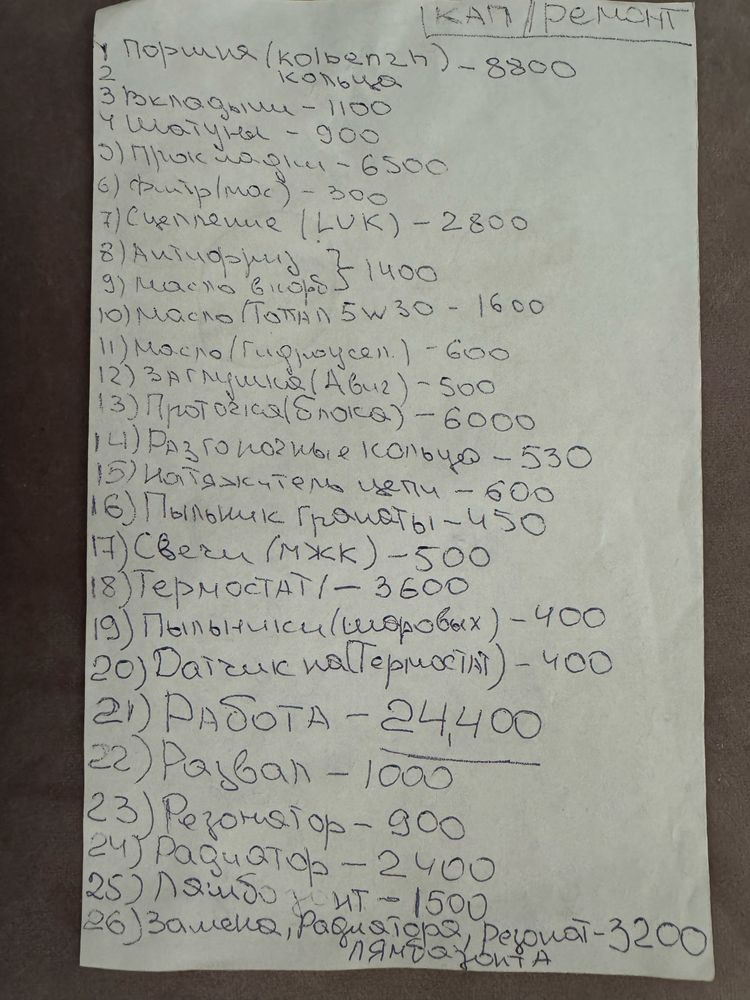 КАП/РЕМОНТ
1 Поршня (kolbenzh) - 8800
2 кольца
3 Вкладыши - 1100
4 Шатуны - 900
5) Прокладки - 6500
6) Фитр(мас) - 300
7) Сцепление (LUK) - 2800
8) Антифриз } 1400
9) Масло в короб
10) Масло (Тотал 5w30 - 1600
11) Масло (Гидроусел.) - 600
12) Заглушка (Двиг) - 500
13) Проточка (блока) - 6000
14) Разгоночные кольца - 530
15) Натяжитель цепи - 600
16) Пыльник гранаты - 450
17) Свечи (МЖК) - 500
18) Термостат / - 3600
19) Пыльники (шаровых) - 400
20) Датчик на (Термостат) - 400
21) Работа - 24,400
22) Развал - 1000
23) Резонатор - 900
24) Радиатор - 2400
25) Лямбо зонт - 1500
26) Замена, Радиатора, Резонат - 3200
лямбазонта